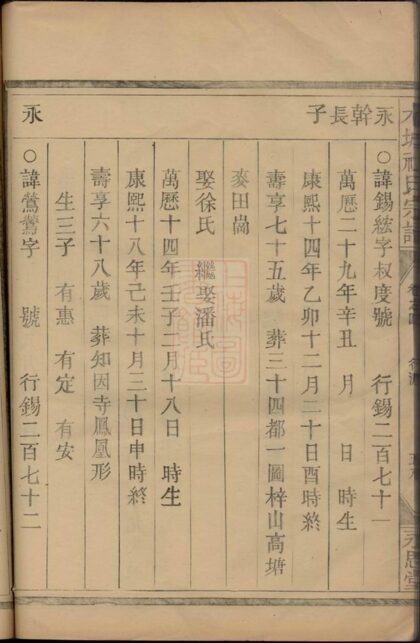 氏宗譜 永思堂
永幹長子
○諱錫紘字叔度號 行錫二百七十一
萬曆二十九年辛丑 月 日 時生
康熙十四年乙卯十二月二十日酉時終
壽享七十五歲 葬三十四都一圖梓山高塘
麥田崗
娶徐氏 繼娶潘氏
萬曆十四年壬子二月十八日 時生
康熙十八年己未十月三十日申時終
壽享六十八歲 葬知因寺鳳凰形
生三子 有惠 有定 有安
永
○諱鶯 字 號 行錫二百七十二